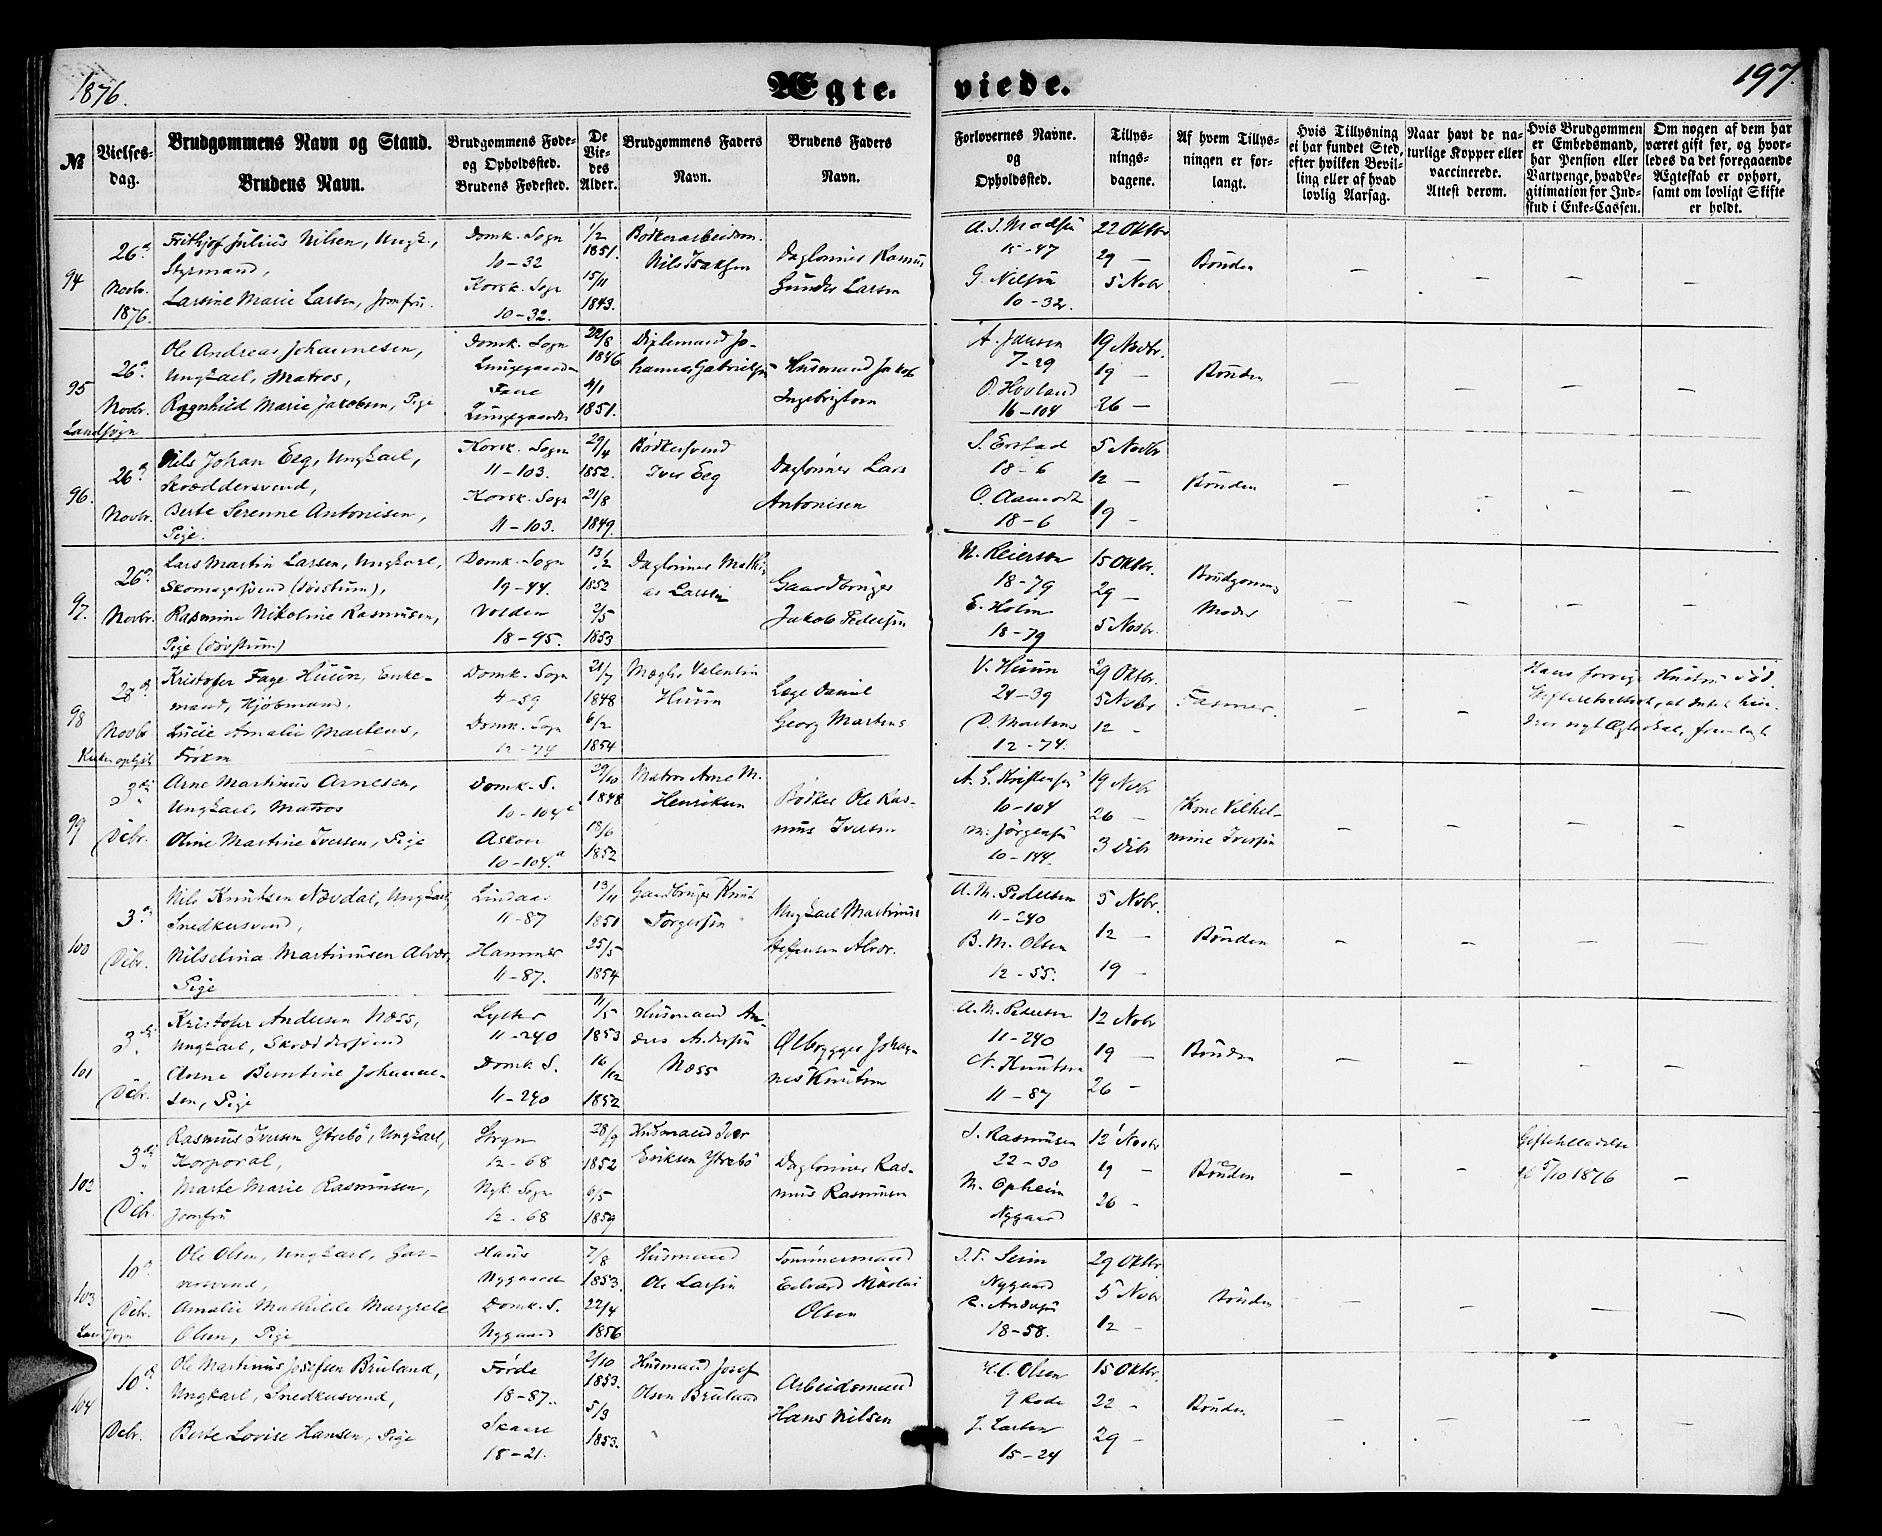 1876.
Ægte. viede.
197.
№
Vielses-
dag.
Brudgommens Navn og Stand.
Brudens Navn.
Brudgommens Føde-
og Opholdssted.
Brudens Fødested.
De
Vie-
des
Alder.
Brudgommens Faders
Navn.
Brudens Faders
Navn.
Forlovernes Navne.
og
Opholdssted.
Tillys-
nings-
dagene.
Af hvem Tillys-
ningen er for-
langt.
Hvis Tillysning
ei har fundet Sted,
efter hvilken Bevil-
ling eller af hvad
lovlig Aarsag.
Naar havt de na-
turlige Kopper eller
vaccinerede.
Attest derom.
Hvis Brudgommen
er Embedsmand,
har Pension eller
Vartpenge, hvad Le-
gitimation for Ind-
skud i Enke-Cassen.
Om nogen af dem har
været gift før, og hvor-
ledes da det foregaaende
Ægteskab er ophørt,
samt om lovligt Skifte
er holdt.
94
26d
Novbr.
1876.
Frithjof Julius Nilsen, Ungk.,
Styrmand,
Larsine Marie Larsen, Jomfru.
Domk. Sogn
10-32
Korsk. Sogn
10-32.
1/2
1851.
15/11
1843.
Bødkerarbeidsm.
Nils Isaksen
Daglønner Rasmus
Gunder Larsen
A. J. Madsen
15-47
G. Nilsen
10-32.
22 Oktbr
29 —
5 Novbr
Brüden
— — — —
95
26d
Novbr.
Landsogn
Ole Andreas Johannesen,
Ungkarl, Matros,
Ragnhild Marie Jakobsen, Pige
Domk. Sogn
Lungegaarden
Fane
Lungegaarden
22/8
1846
4/1
1851.
Johannes Gabrielsen
Husmand Jakob
Ingebrigtsen
A. Jansen
7-29
O. Hovland
16-104
19 Novbr.
19 —
26 —
Brüden
— — — —
96.
26d
Novbr.
Nils Johan Eeg, Ungkarl,
Skræddersvend,
Berte Serenne Antonisen,
Pige.
Korsk. Sogn
11-103.
Korsk. Sogn
11-103.
29/4
1852.
21/8
1849.
Bødkersvend
Iver Eeg
Daglønner Lars
Antonisen
S. Erstad
18-6
O. Aamodt
18-6
5 Novbr
12 —
19 —
Brüden
— — — —
97.
26d
Novbr.
Lars Martin Larsen, Ungkarl,
Skomagersvend (døvstum),
Rasmine Nikoline Rasmusen,
Pige (døvstum)
Domk. Sogn
19-44.
Volden
18-95.
13/2
1852
2/5
1853
Daglønner Mathi-
as Larsen
Gaardbruger
Jakob Pedersen
N. Reierson
18-79
E. Holm
18-79
15 Oktbr.
29 —
5 Novbr.
Brudgommens
Moder
— — — —
98
28d
Novbr
Kristofer Faye Huun, Enke-
mand, Kjøbmand,
Lucie Amalie Martens,
Frøken
Domk. Sogn
4-59
Domk. Sogn
12-74
21/7
1848
6/2
1854
Mægler Valentin
Huun
Læge Daniel
Georg Martens
V. Huun
24-39
D. Martens
12-74.
29 Oktbr.
5 Novbr
12 —
Fasmer.
— —
Hans forrige Hustru død.
99
3die
Debr.
Arne Martinus Arnesen,
Ungkarl, Matros
Oline Martine Iversen, Pige
Domk. S.
10-104a
Askøen
10-104.a
29/10
1848
18/6
1852
Matros Arne M.
Henriksen
Bødker Ole Ras-
mus Iversen
A. L. Kristensen
10-104
M. Jørgensen
10-144.
19 Novbr
26 —
3 Debr
Kone Vilhel-
mine Iversen
— — — —
100
3die
Debr.
Nils Knutsen Nævdal, Ungkarl,
Snedkersvend,
Nilselina Martinusen Alver,
Pige
Lindaas
11-87
Hammer
11-87.
13/11
1851
25/5
1854
Gaardbruger Knut
Torgersen
Ungkarl Martinus
Steffensen Alver.
A. M. Pedersen
11-240
B. M. Olsen
12-55.
5 Novbr.
12 —
19 —
Brüden
— — — —
101
3die
Debr.
Kristofer Andersen Næss,
Ungkarl, Skræddersvend
Anna Berntine Johanne-
sen, Pige
Lyster
11-240
Domk. S.
11-240
11/5
1853
16/12
1852
Husmand An-
ders Andersen
Næss
Ølbrygger Johan-
nes Knutsen
A. M. Pedersen
11-240
N. Knutsen
11-87
12 Novbr
19 —
26 —
Brüden
— — — —
102
3die
Debr.
Rasmus Iversen Ytrebø, Ungkarl,
Korporal,
Marte Marie Rasmusen,
Jomfru
Stryn
12-68
Nyk. Sogn
12-68
28/9
1852
6/5
1859
Husmand Iver
Eriksen Ytrebø
Daglønner Ras-
mus Rasmusen
J. Rasmusen
22-30
M. Opheim
Nygaard
12 Novbr
19 —
26 —
Brüden
— —
Giftetilladelse
af 5/10 1876
—
103
10d
Debr.
Landsogn
Ole Olsen, Ungkarl, Gar-
versvend,
Amalie Mathilde Margrete
Olsen, Pige
Haus
Nygaard
Domk. S.
Nygaard
7/8
1853.
22/4
1856
Husmand
Ole Larsen
Tømmermand
Edvard Nikolai
Olsen
Seim
Nygaard
Andersen
18-58.
29 Oktbr
5 Novbr
12 —
Brüden
— — — —
104
10d
Debr.
Ole Martinus Josefsen Bruland,
Ungkarl, Snedkersvend,
Berte Lovise Hansen, Pige
Førde
18-87.
Skaare
18-21.
2/10
1853.
5/3
1853.
Husmand Josef
Olsen Bruland
Arbeidsmand
Hans Nilsen
H. C. Olsen
9 Rode
J. Larsen
15-24
15 Oktbr.
22 —
29 —
Brüden
— — — —